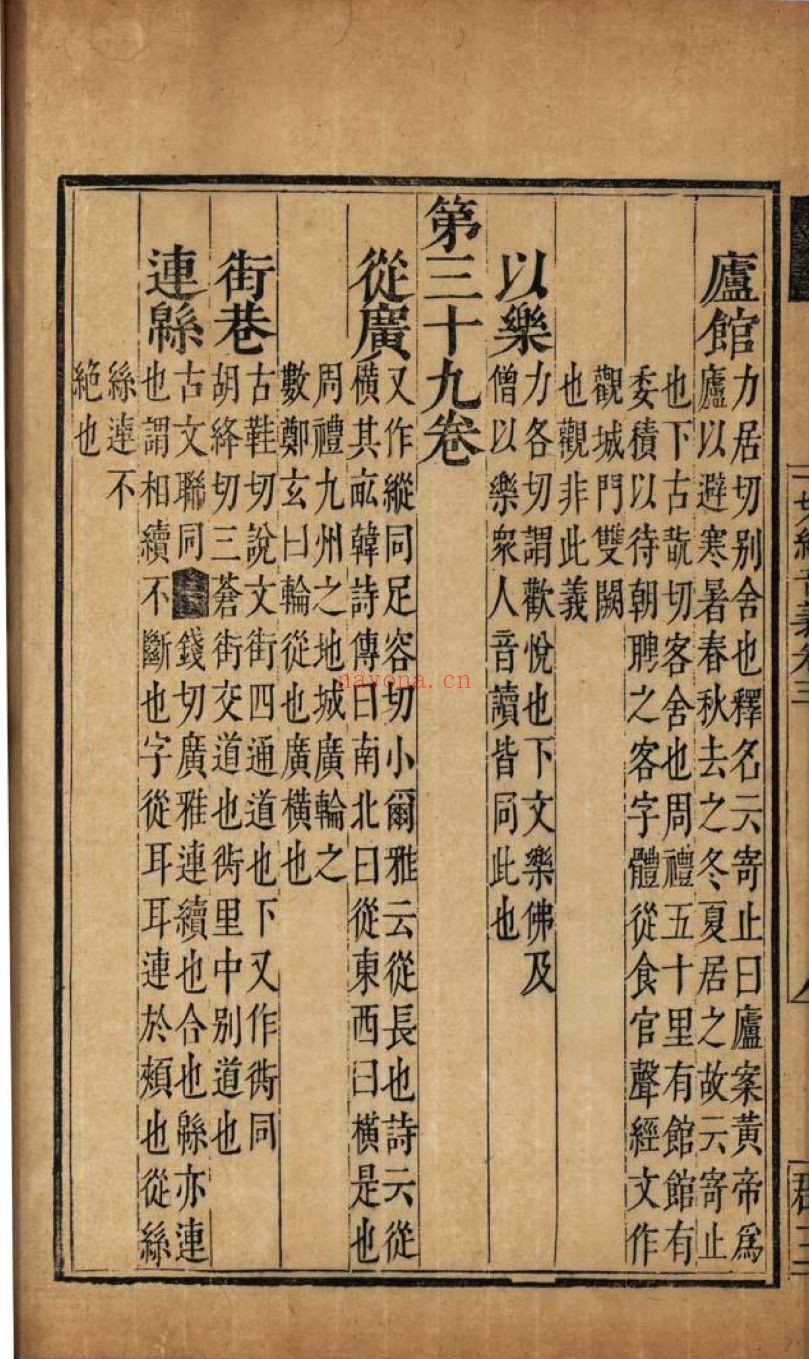 廬館
力居切别舍也釋名云寄止曰廬案黃帝爲
廬以避寒暑春秋去之冬夏居之故云寄止
也下古翫切客舍也周禮五十里有館館有
委積以待朝聘之客字體從食官聲經文作
觀城門雙闕
也觀非此義
以樂
力各切謂歡悅也下文樂佛及
僧以樂衆人音讀皆同此也
第三十九卷
從廣
又作縱同足容切小爾雅云從長也詩云從
橫其畝韓詩傳曰南北曰從東西曰橫是也
周禮九州之地城廣輪之
數鄭玄曰輪從也廣橫也
街巷
古鞋切說文街四通道也下又作衖同
胡絳切三蒼街交道也衖里中别道也
連緜
古文聯同錢切廣雅連續也合也緜亦連
也謂相續不斷也字從耳耳連於頰也從絲
絲連不
絕也
一切經音義卷三
nayona.cn